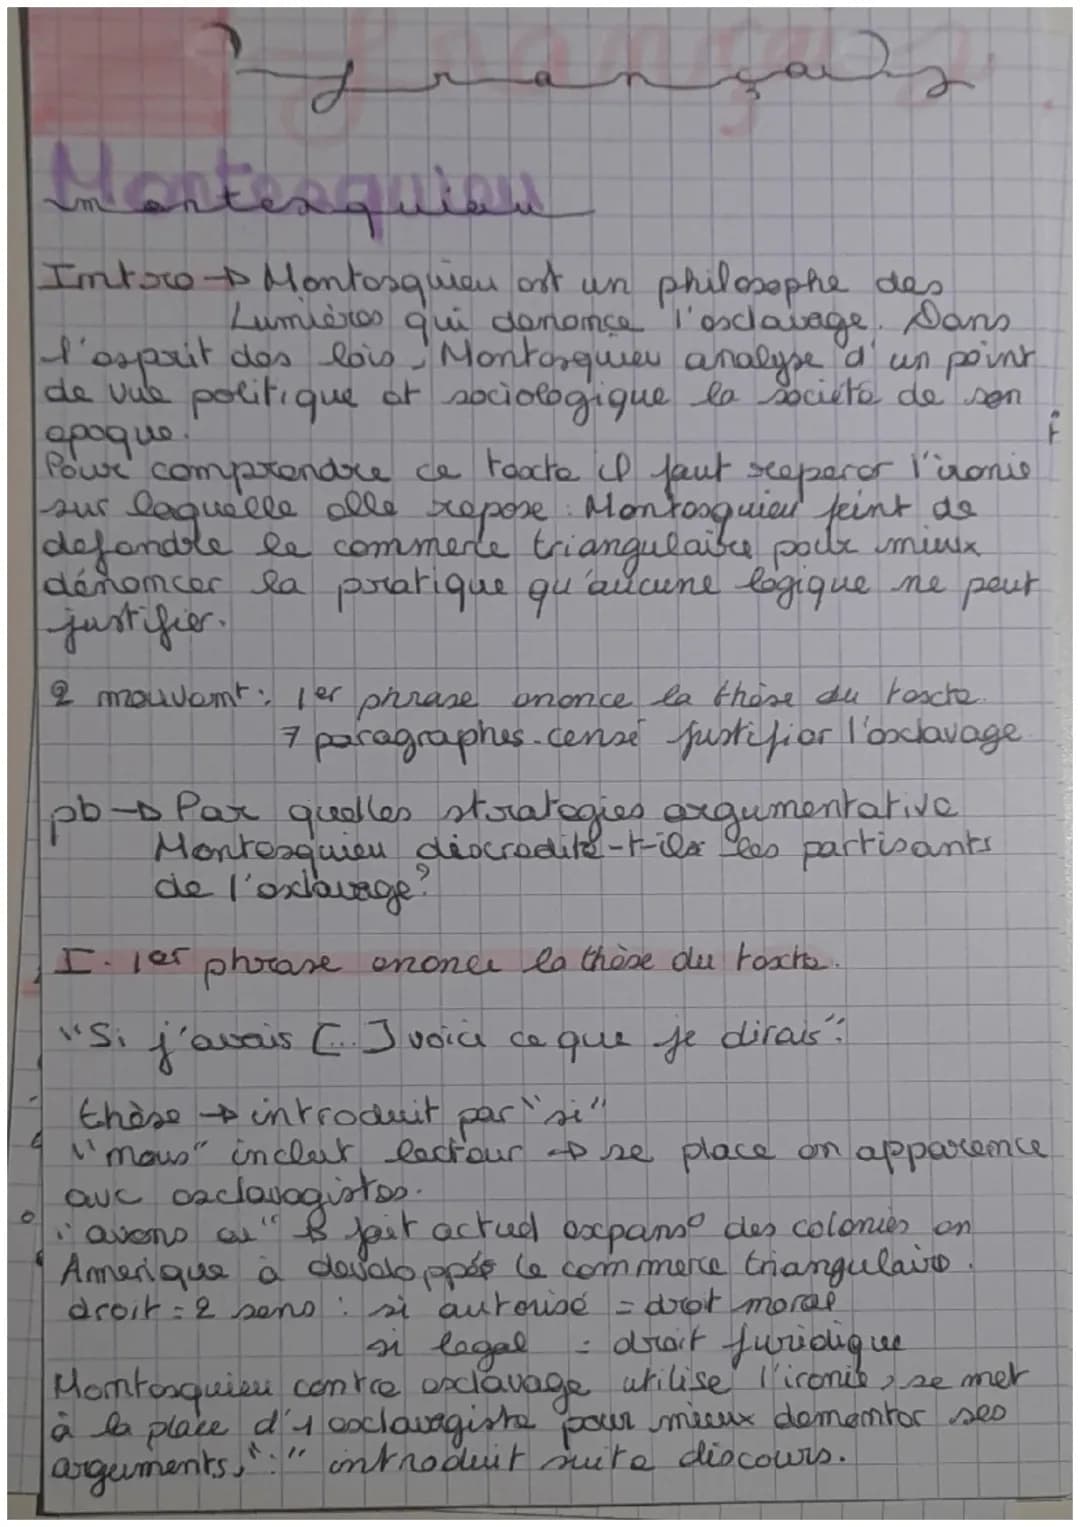 Français
Montesquieu
Intro → Montesquieu est un philosophe des
Lumières qui dénonce l'esclavage. Dans
l'esprit des lois, Montesquieu analyse d'un point
de vue politique et sociologique la société de son
epoque.
Pour comprendre ce texte il faut reperer l'ironie
sur laquelle elle repose : Montesquieu feint de
defendre le commerce triangulaire pour mieux
dénoncer la pratique qu'aucune logique ne peut
justifier.
2 mouvemt : 1er phrase enonce la thèse du texte.
7 paragraphes censé justifier l'esclavage
pb → Par quelles strategies argumentative
Montesquieu discredite-t-ils les partisants
de l'esclavage?
I. 1er phrase enonce la thèse du texte.
"Si j'avais [...] voici ce que je dirais":
thèse → introduit par "si"
"nous" inclut lecteur → se place en apparence
avc esclavagistes.
"avons eu" fait actuel expans° des colonies en
Amerique à developpés le commerce triangulaire.
droit = 2 sens : si autorisé = droit moral
si legal = droit juridique
Montesquieu contre esclavage utilise l'ironie, se met
à la place d'1 esclavagiste pour mieux dementer ses
arguments, ":" introduit suite discours.